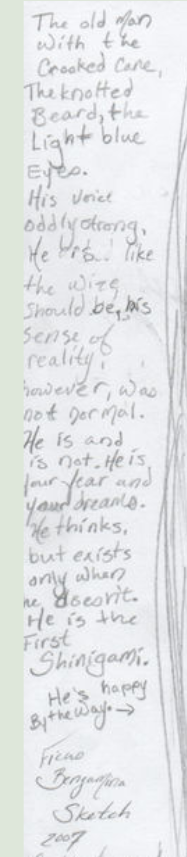 The old man
with the
Crooked Cane,
The knotted
Beard, the
Light blue
Eyes.
His voice
oddly strong,
He is like
the wise
should be, his
sense of
reality,
however, was
not normal.
He is and
is not. He is
your fear and
your dreams.
He thinks,
but exists
only when
he doesn't.
He is the
First
Shinigami.
He's happy
By the way. →
Ficus
Benjamina
Sketch
2007